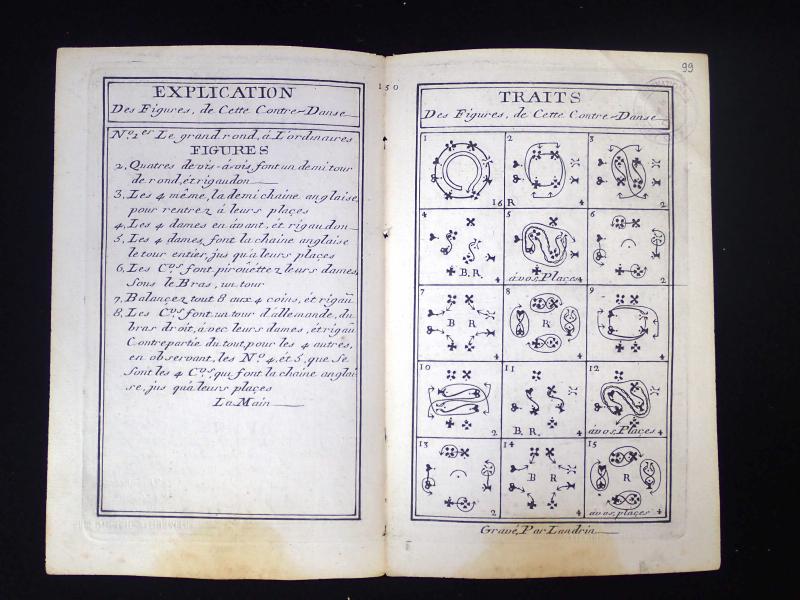 EXPLICATION
Des Figures, de Cette Contre-Danse
No. 1er Le grand rond, à L'ordinaires
FIGURES
2. Quatres de vis-à-vis font un demi tour
de rond, ét rigaudon
3. Les 4 même, la demi chaine anglaise,
pour rentrez à leurs plaçes
4. Les 4 dames en ávant, et rigaudon
5. Les 4 dames font la chaine anglaise
le tour entier, jus qu'a leurs plaçes
6. Les Crs font piroüettez leurs dames,
sous le Bras, un tour
7. Balançez tout 8 aux 4 coins, ét rigau
8. Les Crs font un tour d'allemande, du
bras droit, à vec leurs dames, ét rigau
Contrepartie du tout, pour les 4 autres,
en observant, les No. 4, ét 5, que se
sont les 4 Crs qui font la chaine anglai
se, jus qu'à leurs plaçes
La Main
150
99
TRAITS
Des Figures, de Cette Contre-Danse
1 2 3
16 R 4 2
4 5 6
B. R. 4 ávos, Plaçes 4 2
7 8 9
B R 4 R 4 4
10 11 12
2 B. R. 4 ávos, Plaçes 4
13 14 15
2 B R 4 R ávos, plaçes 4
Gravé, Par Landrin